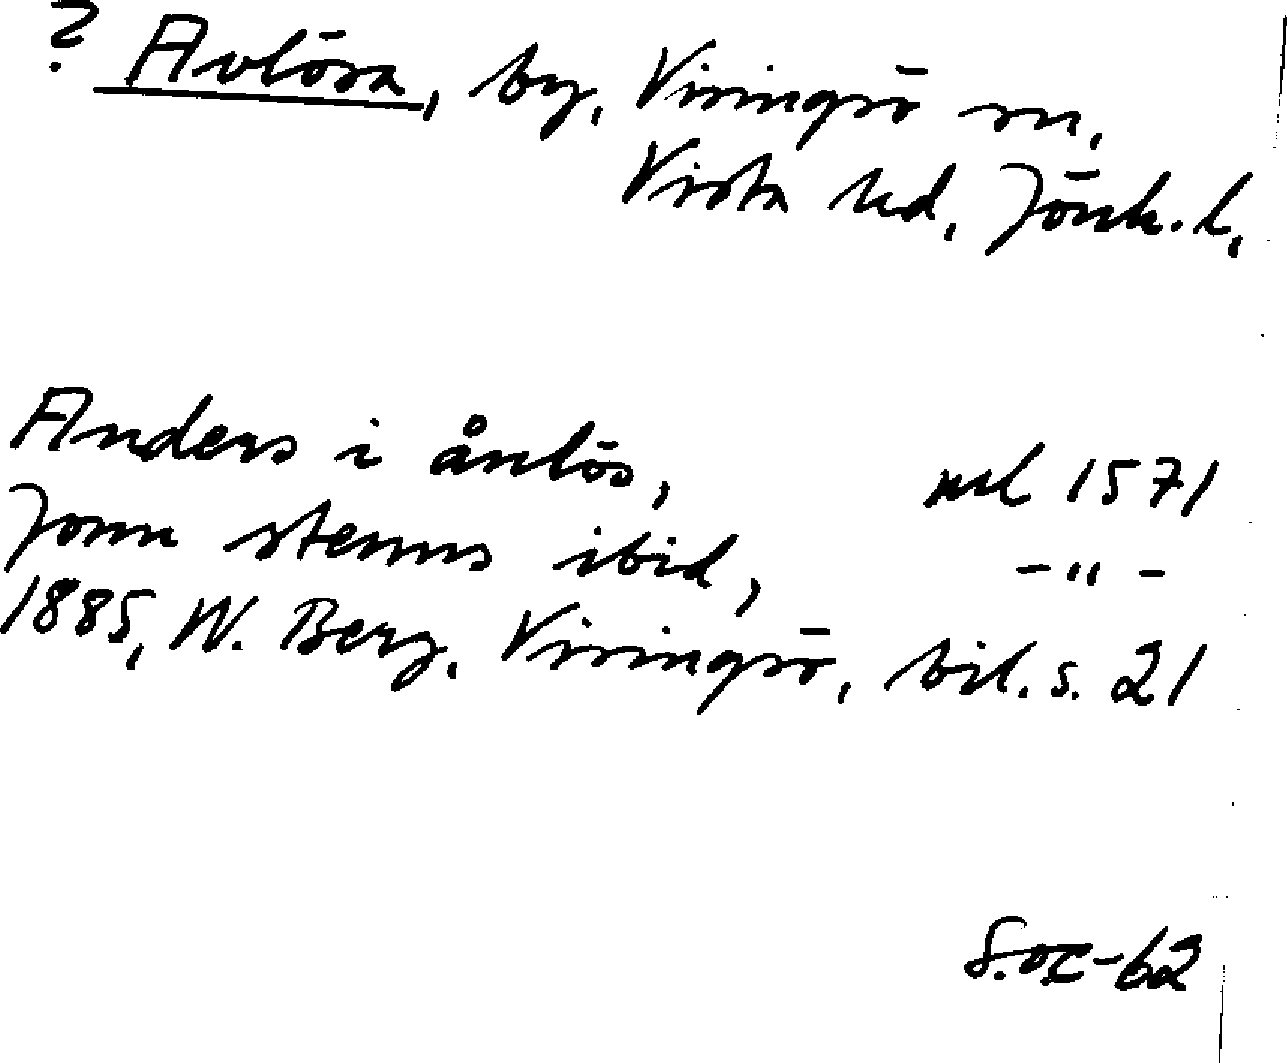 ? Avlösa, by, Visingsö sn,
Vista hd, Jönk. l,
Anders i ånlös, ml 1571
Jonn stenns ibid, -"-
1885, W. Berg, Visingsö, bil. s. 21